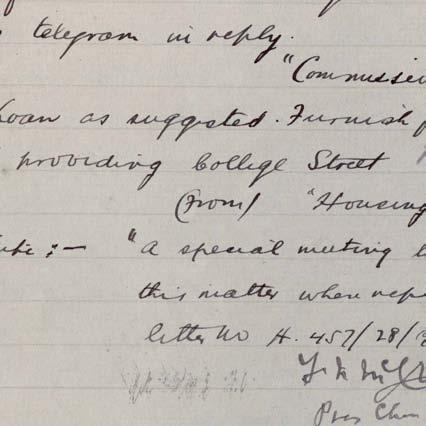 telegram in reply.
"Commissi
Loan as suggested. Furnish
providing College Street
(From) "Housing
:— "A special meeting
this matter when rep
letter No H. 457/28/
Pres